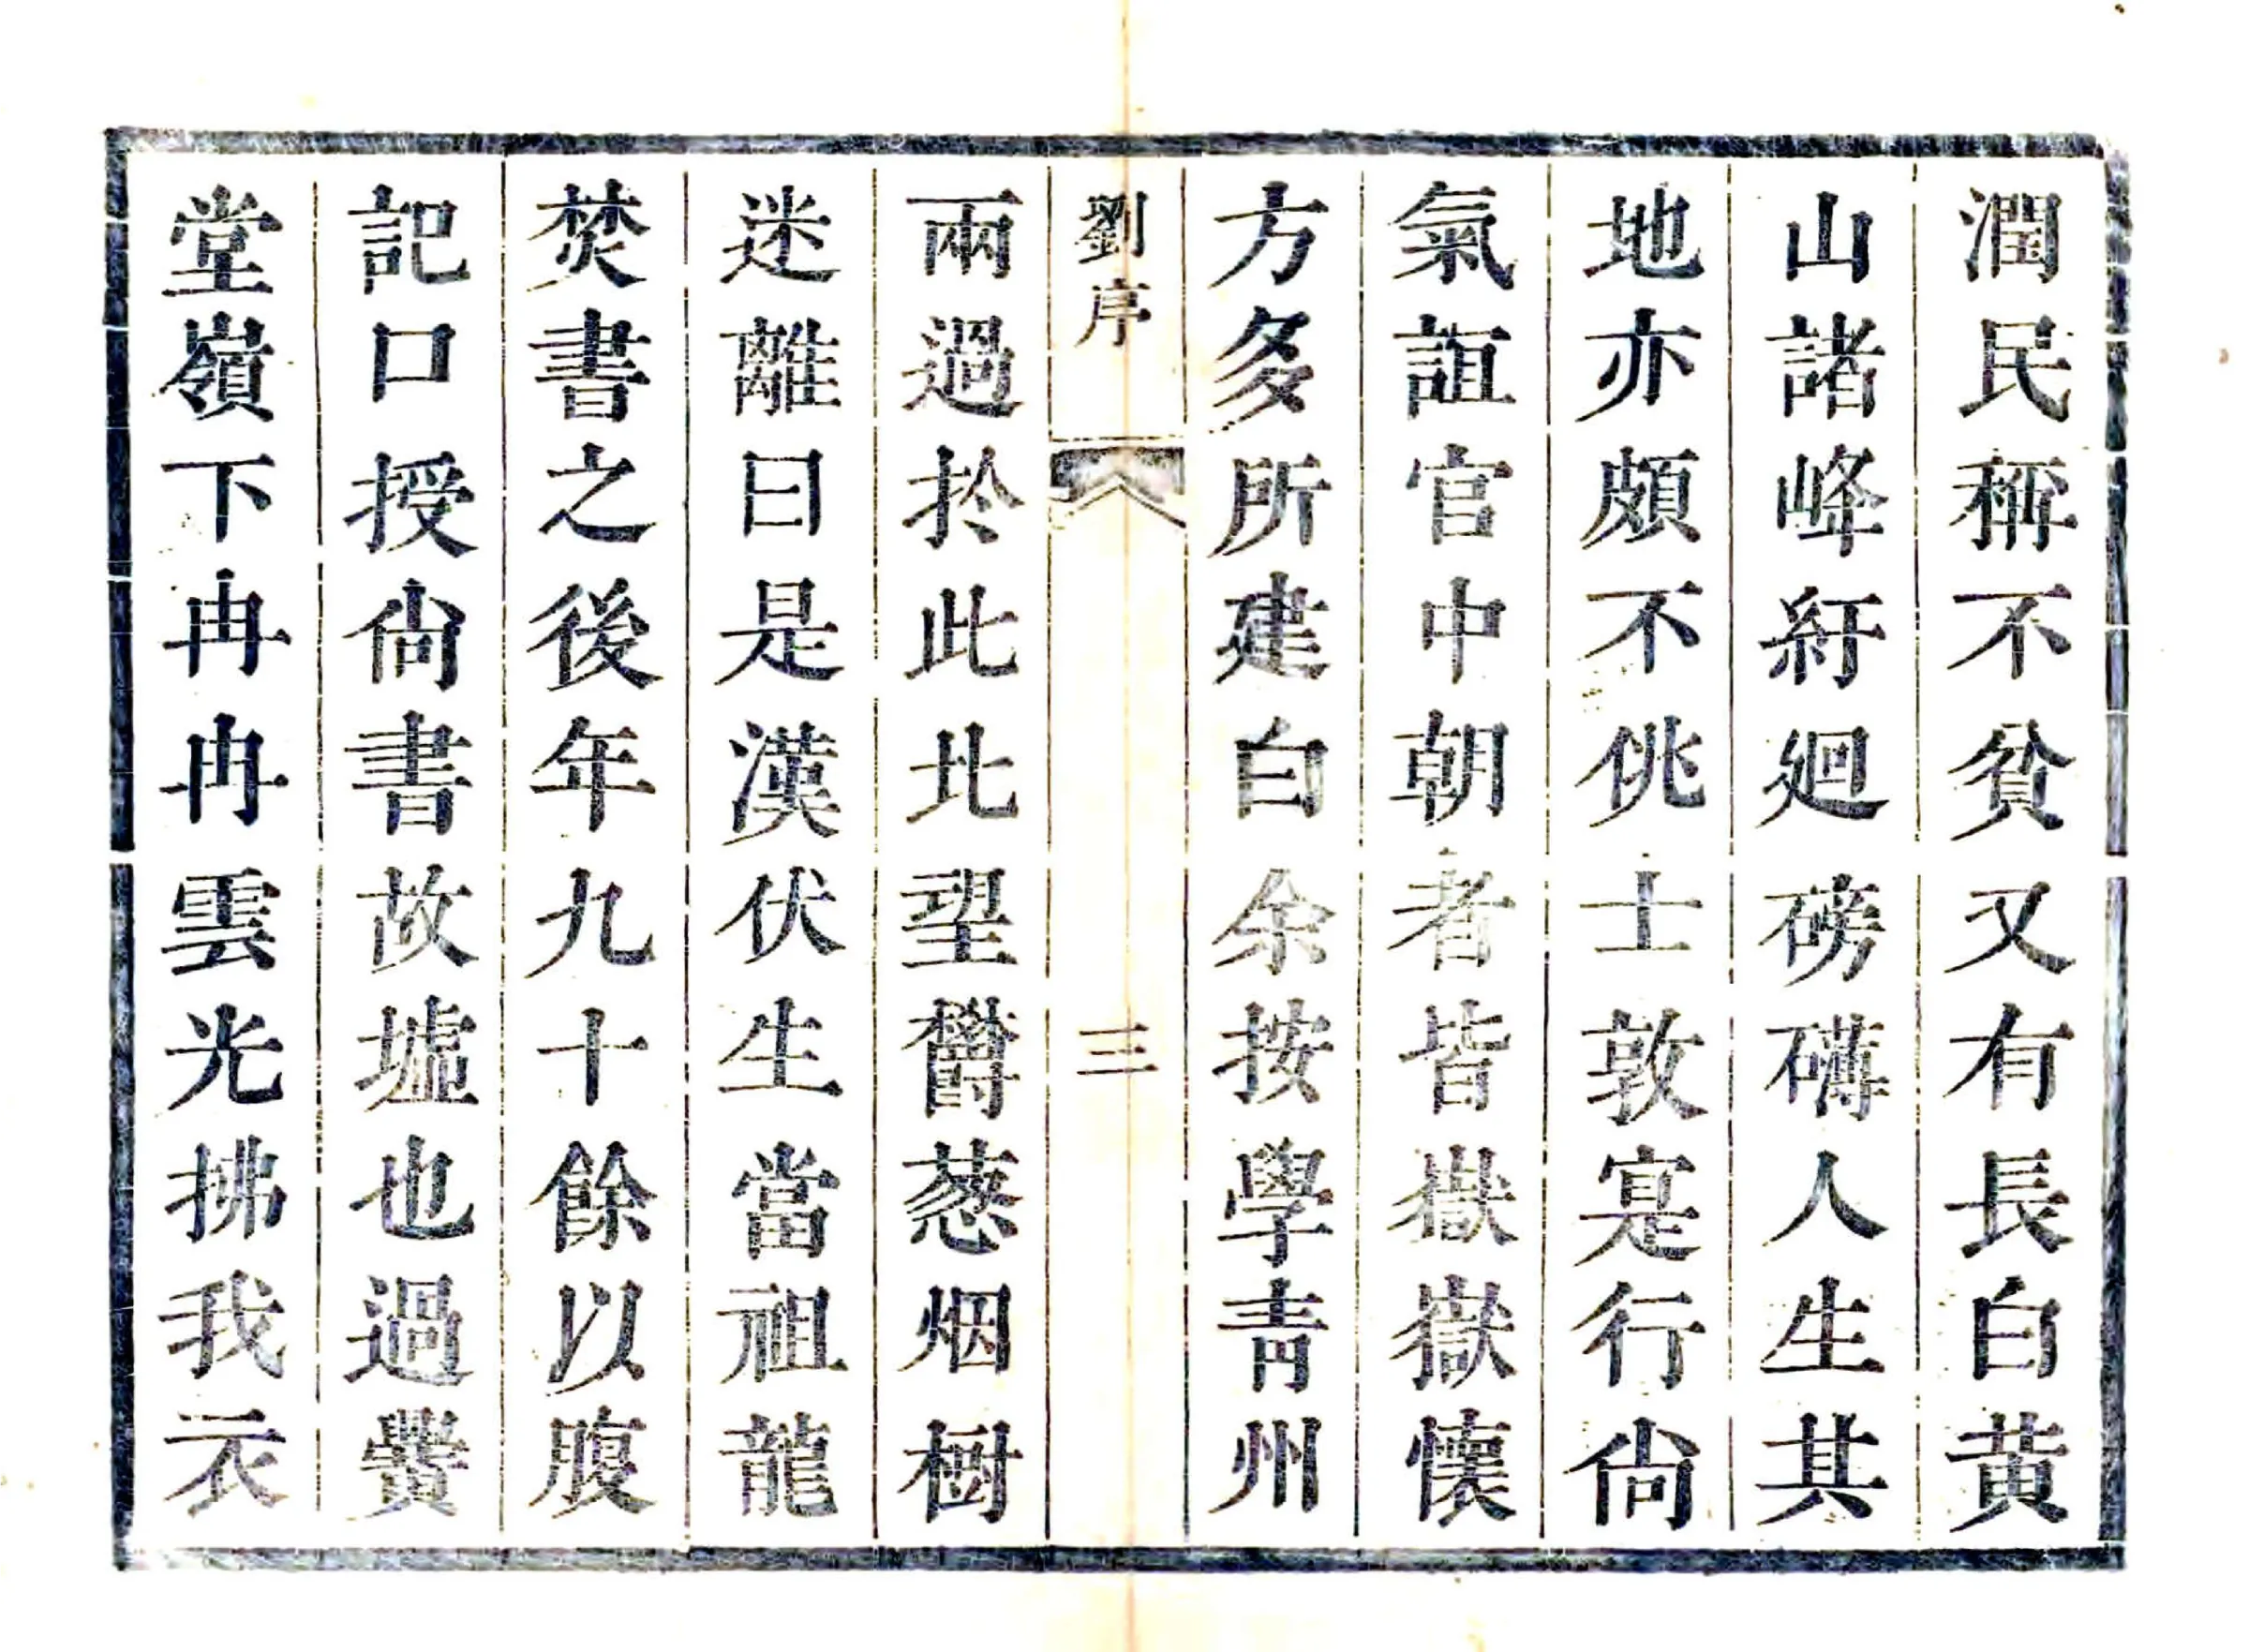 潤民稱不貧又有長白黃
山諸峰紆廻磅礴人生其
地亦頗不佻士敦寔行尙
氣誼官中朝者皆嶽嶽懷
方多所建白余按學青州
劉序
三
兩過於此北望欝蔥烟樹
迷離曰是漢伏生當祖龍
焚書之後年九十餘以腹
記口授尙書故墟也過黌
堂嶺下冉冉雲光拂我衣